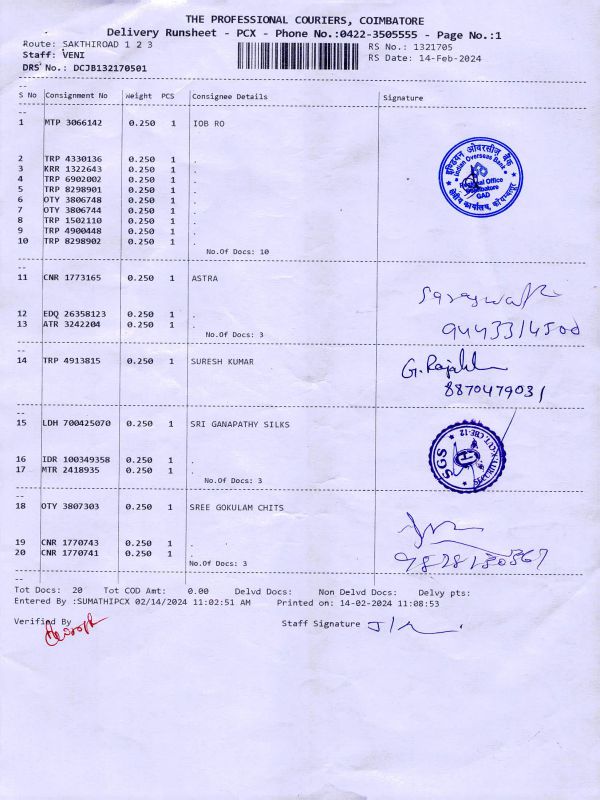 THE PROFESSIONAL COURIERS, COIMBATORE
Delivery Runsheet - PCX - Phone No.:0422-3505555 - Page No.:1
Route: SAKTHIROAD 1 2 3 RS No.: 1321705
Staff: VENI RS Date: 14-Feb-2024
DRS No.: DCJB132170501
--
S No Consignment No Weight PCS Consignee Details Signature
--
1 MTP 3066142 0.250 1 IOB RO
2 TRP 4330136 0.250 1 .
3 KRR 1322643 0.250 1 .
4 TRP 6902002 0.250 1 .
5 TRP 8298901 0.250 1 .
6 OTY 3806748 0.250 1 .
7 OTY 3806744 0.250 1 .
8 TRP 1502110 0.250 1 .
9 TRP 4900448 0.250 1 .
10 TRP 8298902 0.250 1 .
No.Of Docs: 10
इण्डियन ओवरसीज़ बैंक
Indian Overseas Bank
Regional Office
Coimbatore
GAD
क्षेत्रीय कार्यालय, कोयम्बत्तूर
--
11 CNR 1773165 0.250 1 ASTRA
12 EDQ 26358123 0.250 1 .
13 ATR 3242204 0.250 1 .
No.Of Docs: 3
9443314500
--
14 TRP 4913815 0.250 1 SURESH KUMAR
8870479031
--
15 LDH 700425070 0.250 1 SRI GANAPATHY SILKS
16 IDR 100349358 0.250 1 .
17 MTR 2418935 0.250 1 .
No.Of Docs: 3
SGS
--
18 OTY 3807303 0.250 1 SREE GOKULAM CHITS
19 CNR 1770743 0.250 1 .
20 CNR 1770741 0.250 1 .
No.Of Docs: 3
--
Tot Docs: 20 Tot COD Amt: 0.00 Delvd Docs: Non Delvd Docs: Delvy pts:
Entered By :SUMATHIPCX 02/14/2024 11:02:51 AM Printed on: 14-02-2024 11:08:53
Verified By Staff Signature